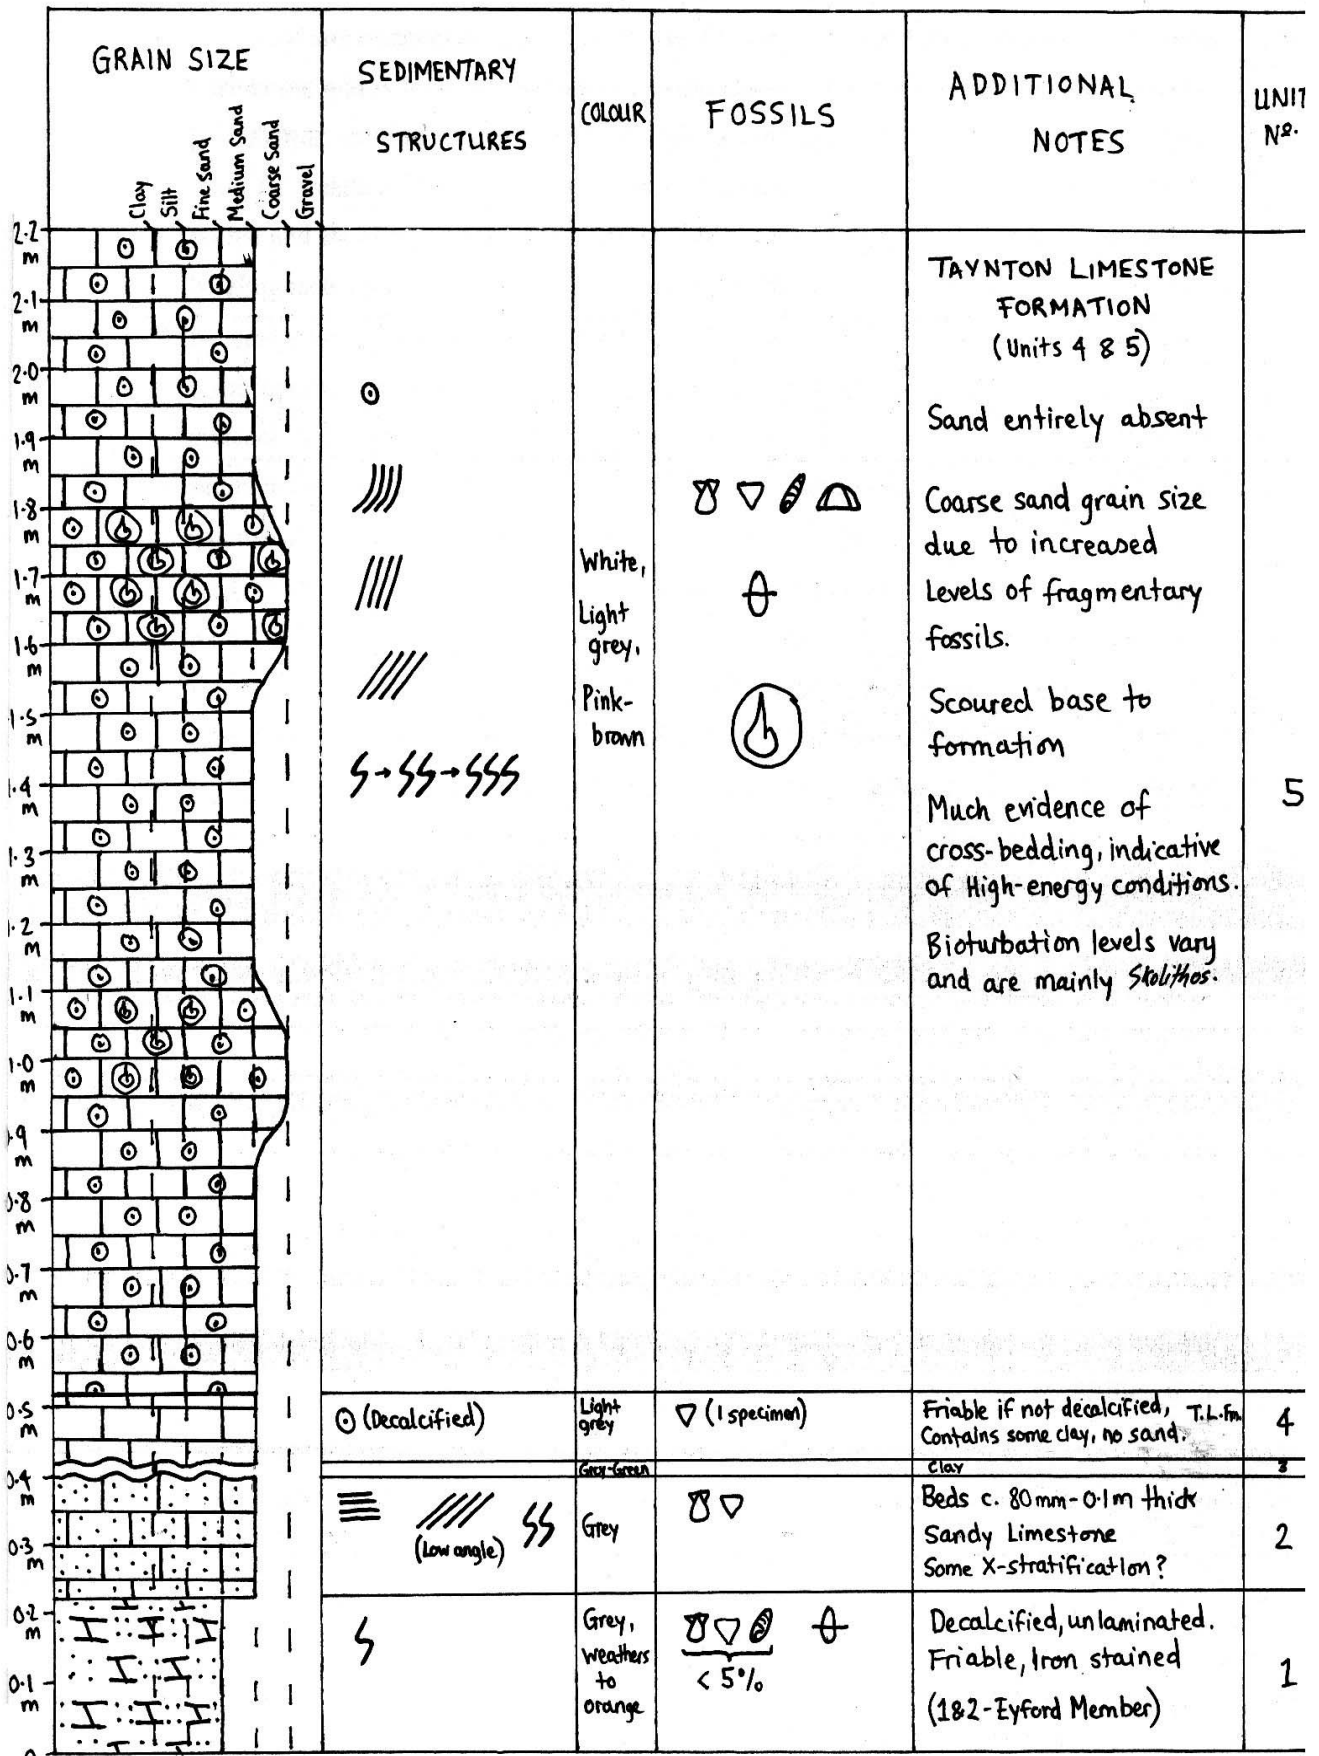 GRAIN SIZE
Clay
Silt
Fine Sand
Medium Sand
Coarse Sand
Gravel
SEDIMENTARY
STRUCTURES
COLOUR
FOSSILS
ADDITIONAL
NOTES
UNIT
Nº.
2.2
m
2.1
m
2.0
m
1.9
m
1.8
m
1.7
m
1.6
m
1.5
m
1.4
m
1.3
m
1.2
m
1.1
m
1.0
m
0.9
m
0.8
m
0.7
m
0.6
m
0.5
m
0.4
m
0.3
m
0.2
m
0.1
m
0
White,
Light
grey,
Pink-
brown
TAYNTON LIMESTONE
FORMATION
(Units 4 & 5)
Sand entirely absent
Coarse sand grain size
due to increased
levels of fragmentary
fossils.
Scoured base to
formation
Much evidence of
cross-bedding, indicative
of High-energy conditions.
Bioturbation levels vary
and are mainly Skolithos.
5
(Decalcified)
Light
grey
(1 specimen)
Friable if not decalcified, T.L.Fm.
Contains some clay, no sand.
4
Grey-Green
Clay
3
(Low angle)
Grey
Beds c. 80mm-0.1m thick
Sandy Limestone
Some X-stratification?
2
Grey,
weathers
to
orange
< 5%
Decalcified, unlaminated.
Friable, Iron stained
(1&2-Eyford Member)
1